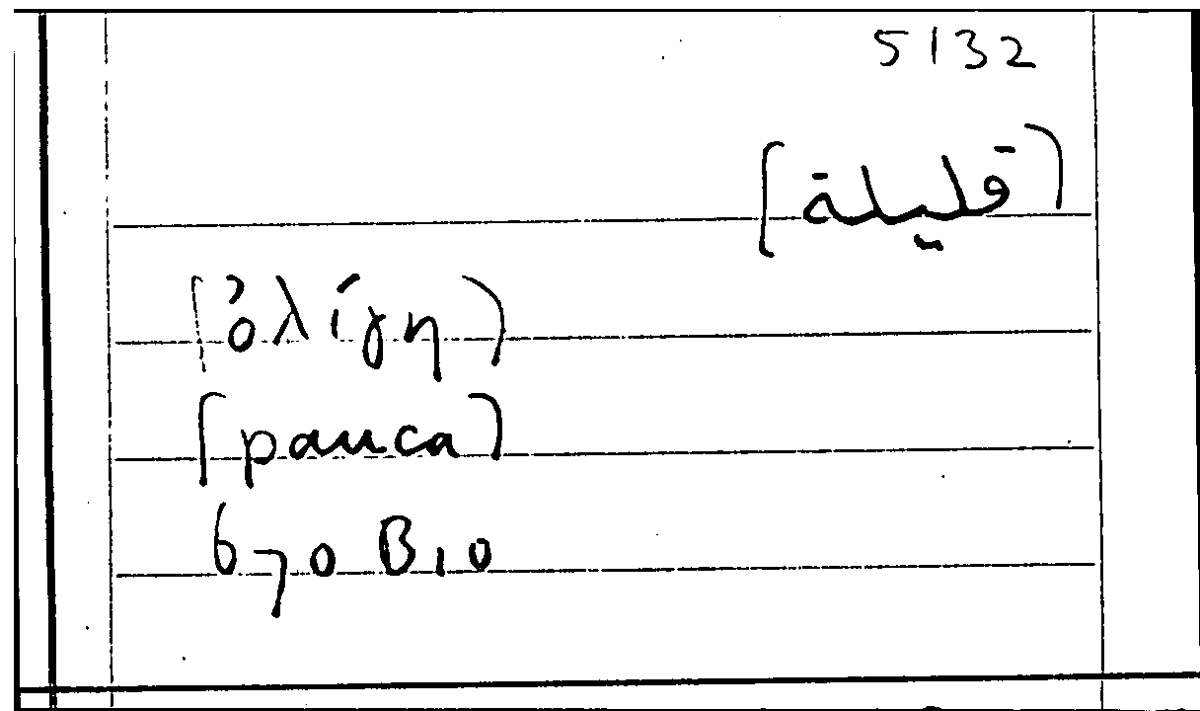 5132
[قليلة]
[ὀλίγη]
[pauca]
670 B10